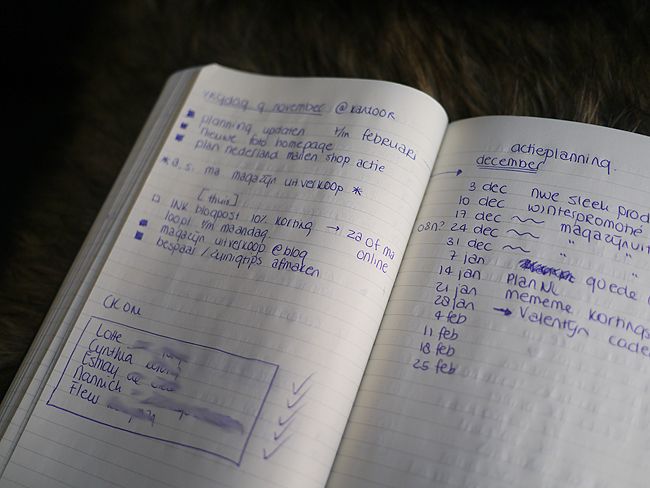 vrijdag 9 november @kantoor
planning updaten t/m februari
nieuwe foto homepage
plan nederland mailen shop actie
* a.s. ma magazijn uitverkoop *
[thuis]
INK blogpost 10% korting → za of ma
loopt t/m maandag online
magazijn uitverkoop @blog
bespaar / zuinigtips afmaken
CK ON
Lotte
Cynthia
Eshay
Mannich
Fleur
actieplanning
december
3 dec nwe sleek prod
10 dec winterpromoné
17 dec ~~ magazijnuit
08n? 24 dec ~~ "
31 dec ~~ " "
7 jan goede
14 jan plan NL
21 jan mememe kortings
28 jan → Valentijn cade
4 feb
11 feb
18 feb
25 feb